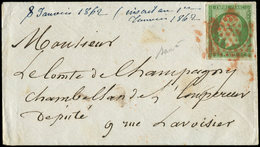 8 Janvier 1862 (
Janvier 1862
Monsieur
Le Comte de Champagny
Chambellan de l'Empereur
Député
9 rue Lavoisier